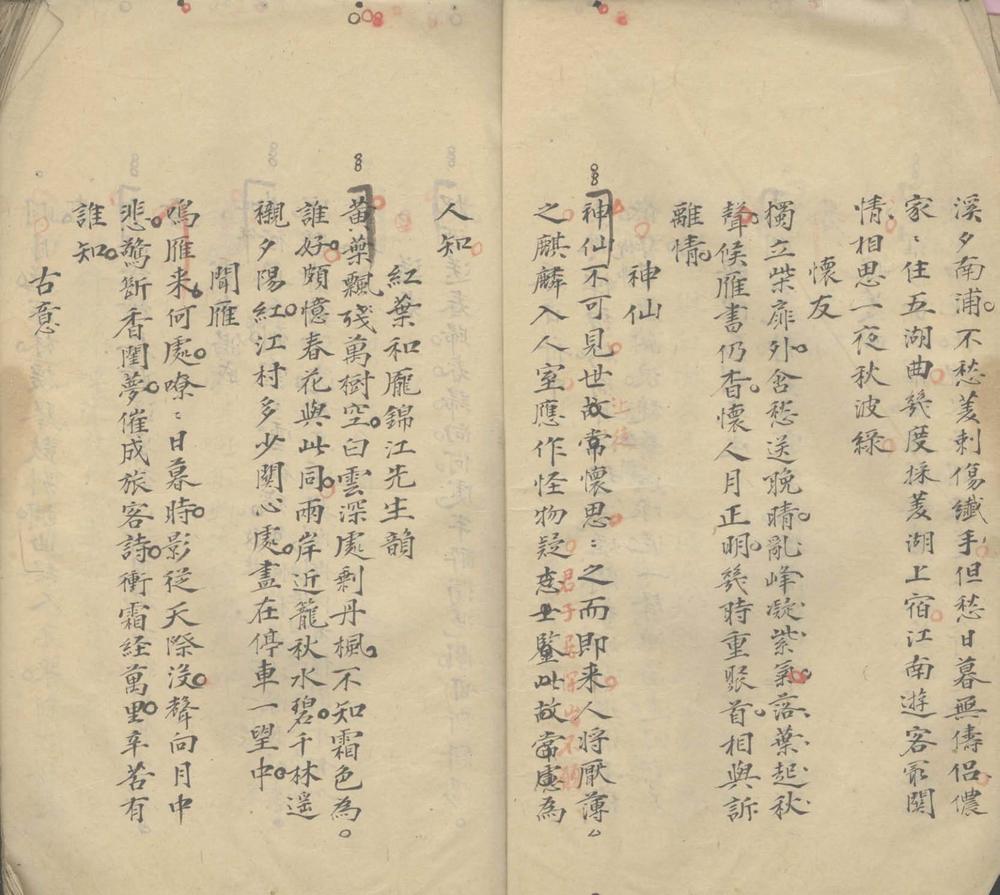 溪夕南浦不愁菱刺傷纖手但愁日暮無儔侶儂
家〻住五湖曲幾度採菱湖上宿江南遊客最關
情相思一夜秋波綠
懷友
獨立柴扉外含愁送晚晴亂峰凝紫氣落葉起秋
聲候雁書仍杳懷人月正明幾時重聚首相與訴
離情
神仙
神仙不可見世故常懷思〻之而即来人將厭薄
之麒麟入人室應作怪物疑志士鑒此故常慮為
人知
紅葉和龐錦江先生韻
黃葉飄殘萬樹空白雲深處剩丹楓不知霜色為
誰好頗憶春花與此同兩岸近籠秋水碧千林遥
襯夕陽紅江村多少關心處盡在停車一望中
聞雁
鳴雁来何處嘹〻日暮時影從天際没聲向月中
悲驚斷香閨夢催成旅客詩衝霜経萬里辛苦有
誰知
古意